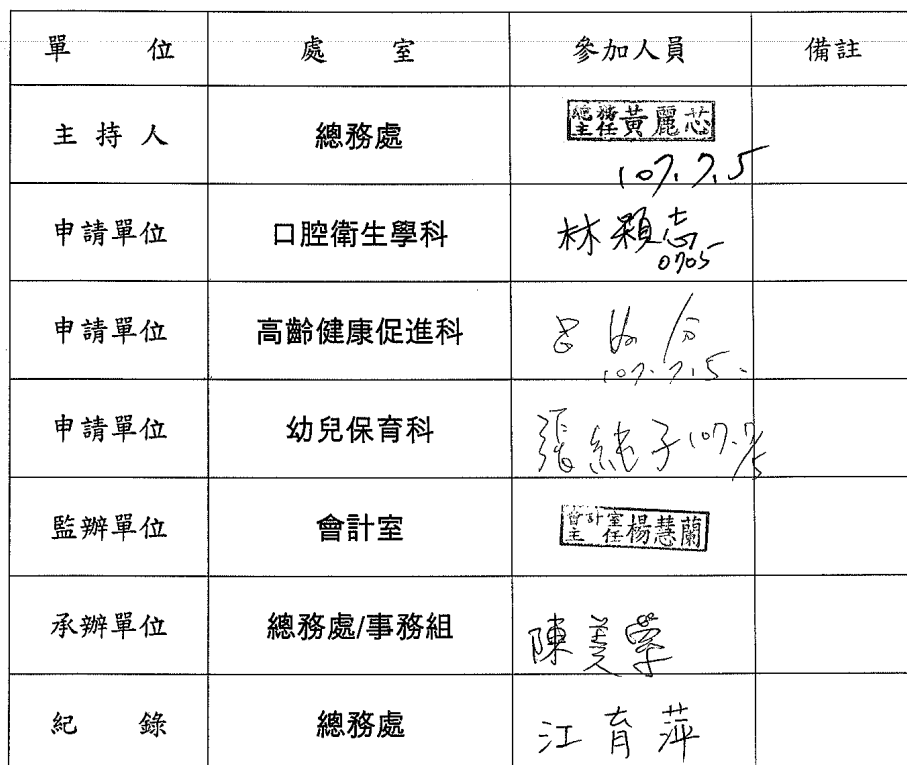 單 位 處 室 參加人員 備註
主持人 總務處 總務主任 黃麗芯
107.7.5
申請單位 口腔衛生學科 林顆志
0705
申請單位 高齡健康促進科
107.7.5.
申請單位 幼兒保育科 張純子 107.7/5
監辦單位 會計室 會計室主任 楊慧蘭
承辦單位 總務處/事務組 陳美
紀 錄 總務處 江育萍